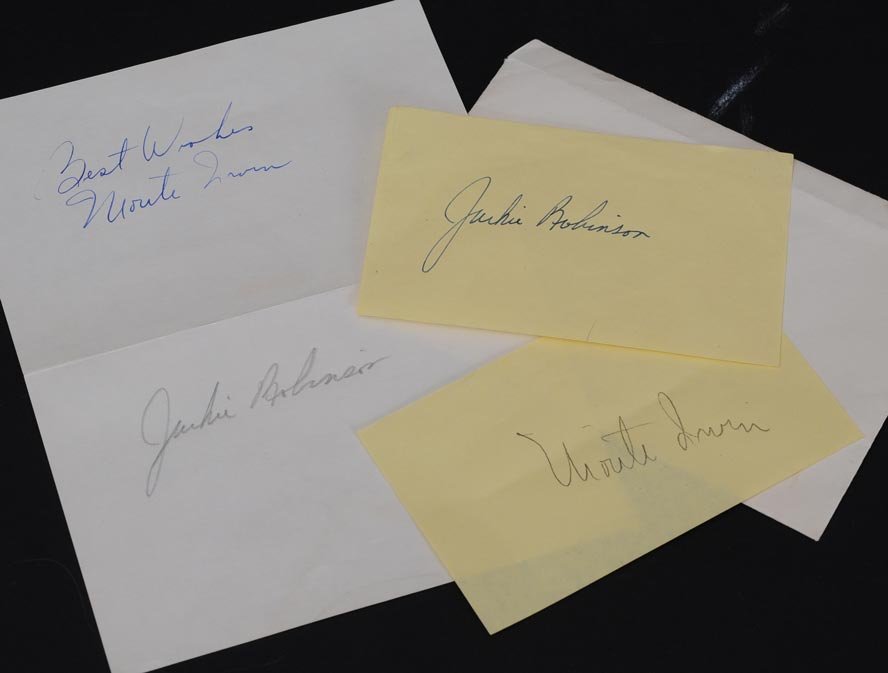 Best Wishes
Monte Irvin
Jackie Robinson
Jackie Robinson
Monte Irvin